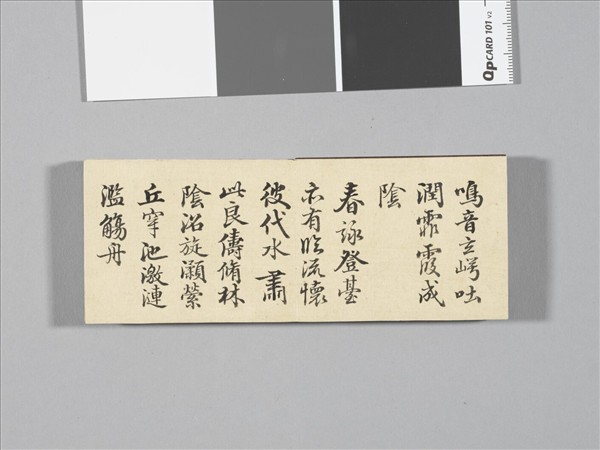 QpCARD 101 v2
鳴音玄崿吐
潤霏霞成
陰
春詠登臺
亦有臨流懷
彼代水肅
此良儔脩林
陰沼旋瀬縈
丘穿池激漣
濫觴舟